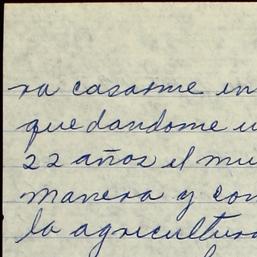 ra casarme en
quedandome u
22 años el mu
manera y con
la agricultura